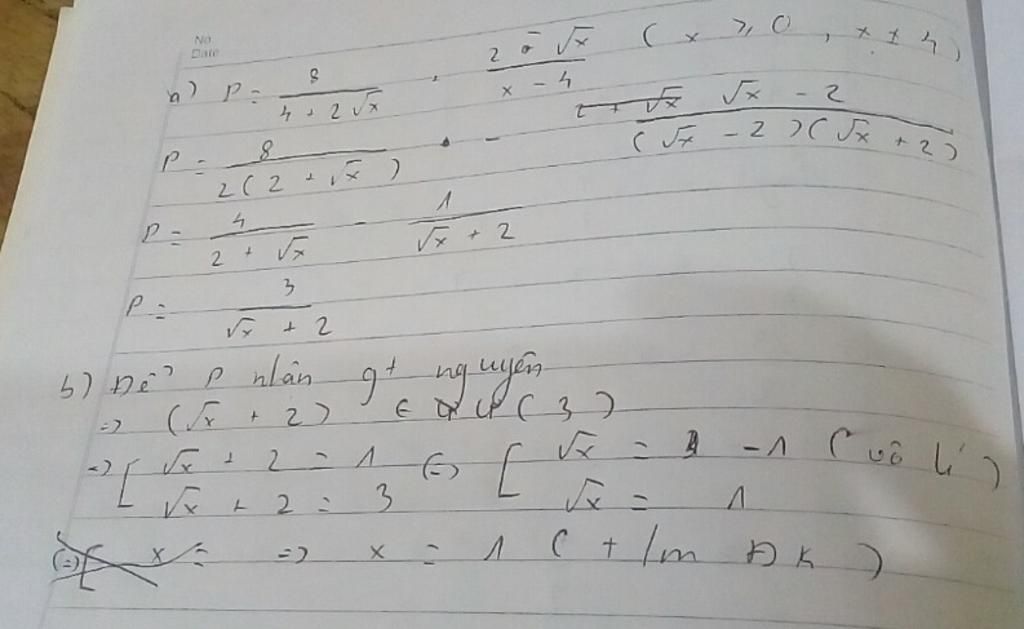 No.
Date
a) P = 8 / (4 + 2√x) + (2 - √x) / (x - 4) ( x ≥ 0 , x ≠ 4 )
P = 8 / (2(2 + √x)) - (√x - 2) / ((√x - 2)(√x + 2))
P = 4 / (2 + √x) - 1 / (√x + 2)
P = 3 / (√x + 2)
b) Để P nhân gt nguyên
=> (√x + 2) ∈ Ư(3)
=> [ √x + 2 = 1 (=) [ √x = -1 (vô lí)
√x + 2 = 3 √x = 1
=> x = 1 ( t/m Đk )